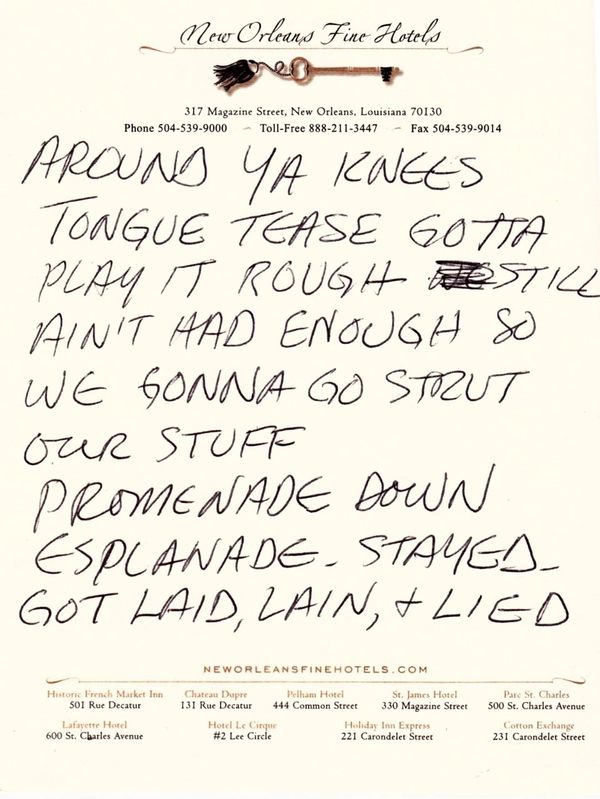 New Orleans Fine Hotels
317 Magazine Street, New Orleans, Louisiana 70130
Phone 504-539-9000 ~ Toll-Free 888-211-3447 ~ Fax 504-539-9014
AROUND YA KNEES
TONGUE TEASE GOTTA
PLAY IT ROUGH STILL
AIN'T HAD ENOUGH SO
WE GONNA GO STRUT
OUR STUFF
PROMENADE DOWN
ESPLANADE - STAYED -
GOT LAID, LAIN, + LIED
NEWORLEANSFINEHOTELS.COM
Historic French Market Inn Chateau Dupre Pelham Hotel St. James Hotel Parc St. Charles
501 Rue Decatur 131 Rue Decatur 444 Common Street 330 Magazine Street 500 St. Charles Avenue
Lafayette Hotel Hotel Le Cirque Holiday Inn Express Cotton Exchange
600 St. Charles Avenue #2 Lee Circle 221 Carondelet Street 231 Carondelet Street